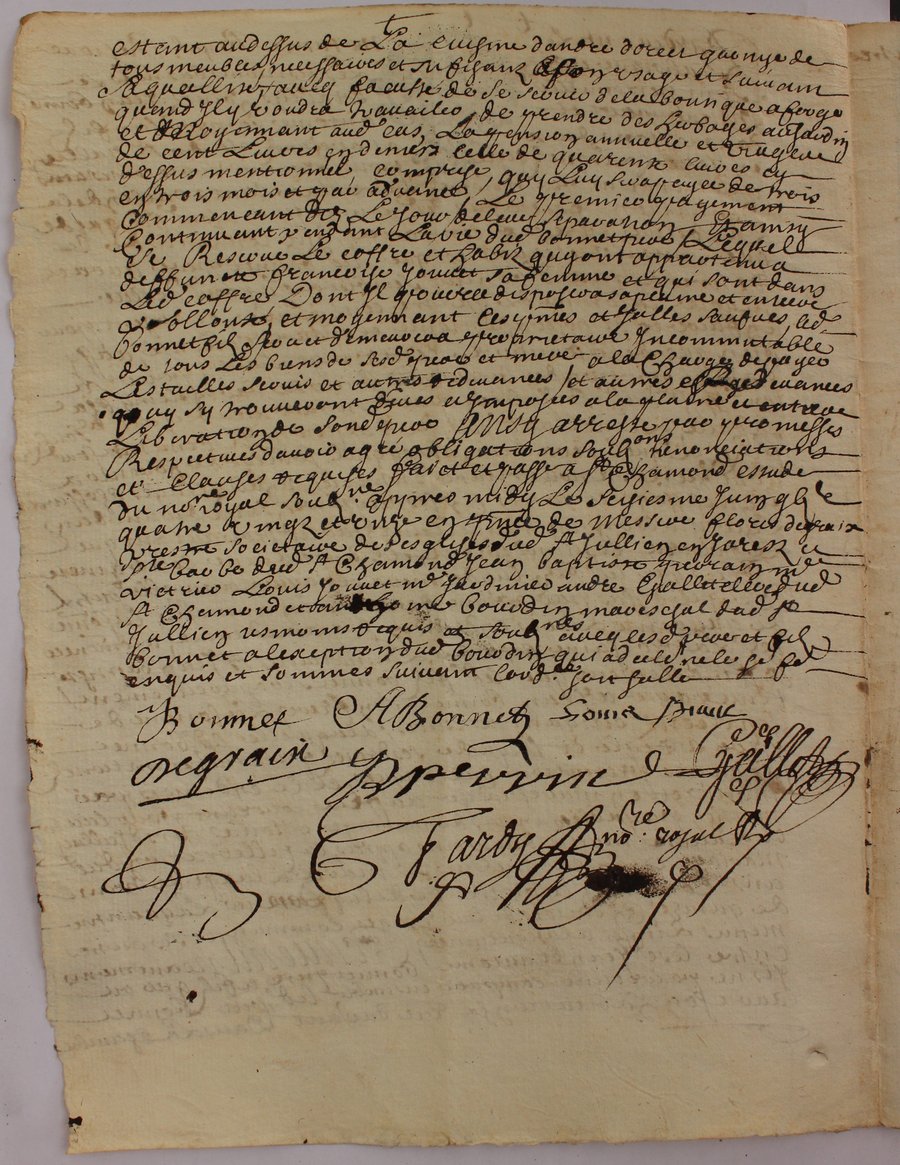 estant audessus de La cuisine d'andre dorcet garnye de
tous meubles necessaires et suffisans a son usage et suivant
sa quallitte avecq faculte de se servir de la boutique a forge
quand Il y voudra travailler, de prendre des herbages au Jardin
et Moyennant aud cas, La pension annuelle et viagere
de cent Livres en deniers celle de quarente livres cy
dessus mentionnee comprise, qu'il Luy sera payee de trois
en trois mois et par advance, Le premier payement
commenceant dez Le Jour de leur separation Et ainsy
Continuant pendant La vie dud bonnet pere, Lequel
se Reserve Le coffre et habitz quy ont appartenu a
deffuncte francoise Jouvet sa femme et qui sont dans
Led coffre Dont Il pourra disposer a sa
et moyennant ce et Icelles saufves, led
bonnet fils sera et demeurera proprietaire Incommutable
de tous Les biens de sesd pere et mere a la Charge de payer
Les tailles servis et autres et autres
quy s'y trouveront deues et Imposees a la et entiere
Liberation de sond pere Ainsy arreste par promesses
Respectives d'avoir agre obligations soubons renonciations
et Clauses requises faict et passe a St Chamond estude
du nore royal soubne appres midy Le seiziesme Juing
quatre vingtz et unze en presence de Messire floris degraix
prestre societaire de l'esglise dud St Jullien en Jarestz et
Ste barbe dud St Chamond Jean baptiste perrin me
Louis Jouvet me Jardinier andre Challet clerc dud
St Chamond et anthoine bourdin mareschal dud St
Jullien tesmoins requis et soubnes avecq lesd pere et fils
bonnet a l'exception dud bourdin qui a declare ne le scavoir
enquis et sommes suivant l'ordce
Bonnet ABonnet Louis
degraix pperrin Challet
Tardy nore royal